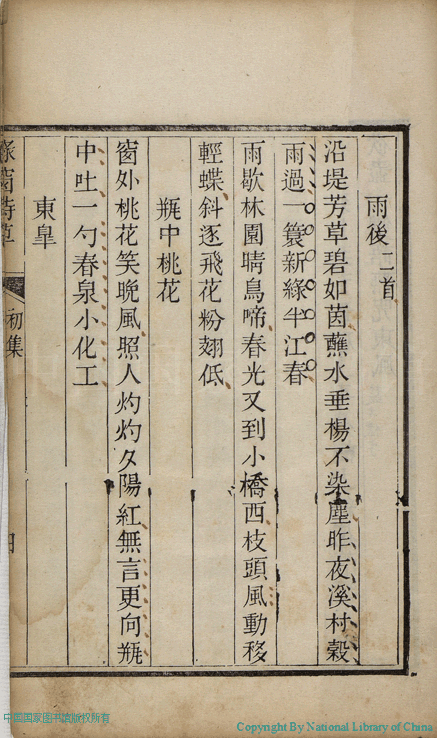 雨後二首
沿堤芳草碧如茵蘸水垂楊不染塵昨夜溪村穀
雨過一簑新綠半江春
雨歇林園晴鳥啼春光又到小橋西枝頭風動移
輕蝶斜逐飛花粉翅低
瓶中桃花
窗外桃花笑晚風照人灼灼夕陽紅無言更向瓶
中吐一勺春泉小化工
東皐
詩草
初集
中国国家图书馆版权所有
Copyright By National Library of China